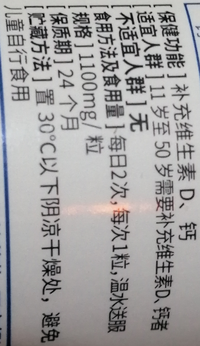 [保健功能] 补充维生素 D、钙
[适宜人群] 11 岁至 50 岁需要补充维生素D、钙者
[不适宜人群] 无
[食用方法及食用量] 每日2次,每次1粒,温水送服
[规格] 1100mg/粒
[保质期] 24 个月
[贮藏方法] 置 30°C以下阴凉干燥处, 避免
儿童自行食用